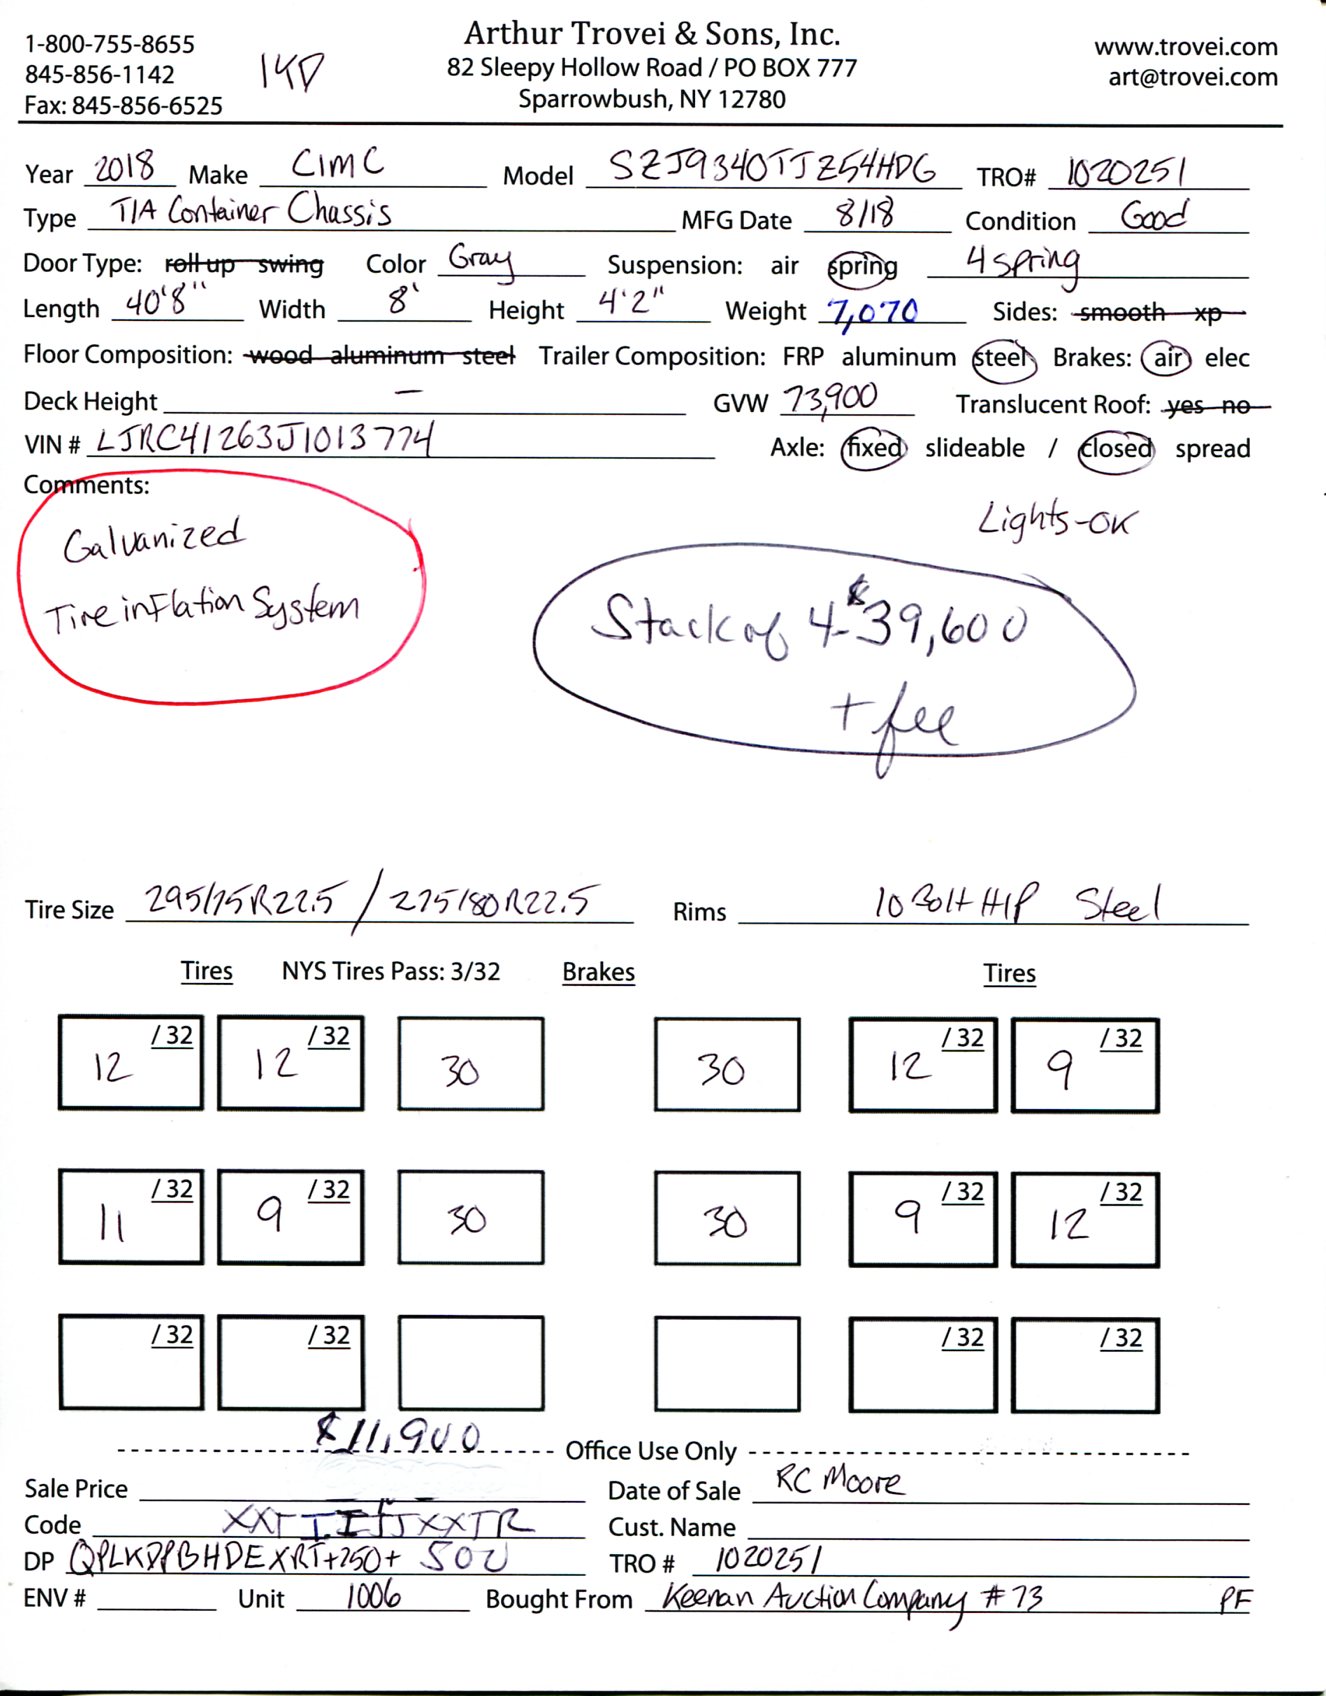 1-800-755-8655
845-856-1142
Fax: 845-856-6525
Arthur Trovei & Sons, Inc.
82 Sleepy Hollow Road / PO BOX 777
Sparrowbush, NY 12780
www.trovei.com
art@trovei.com
Year 2018 Make CIMC Model SZJ9340TJZ54HDG TRO# 1020251
Type T/A Container Chassis MFG Date 8/18 Condition Good
Door Type: roll up swing Color Gray Suspension: air spring 4 spring
Length 40'8" Width 8' Height 4'2" Weight 7,070 Sides: smooth xp
Floor Composition: wood aluminum steel Trailer Composition: FRP aluminum steel Brakes: air elec
Deck Height — GVW 73,900 Translucent Roof: yes no
VIN # LJRC41263J1013774 Axle: fixed slideable / closed spread
Comments:
Lights-OK
Galvanized
Tire inflation System
Stack of 4-$39,600
+ fee
Tire Size 295/75R22.5 / 275/80R22.5 Rims 10 Bolt H/P Steel
Tires NYS Tires Pass: 3/32 Brakes Tires
12 /32 12 /32 30 30 12 /32 9 /32
11 /32 9 /32 30 30 9 /32 12 /32
/32 /32 /32 /32
$11,900 Office Use Only
Sale Price Date of Sale RC Moore
Code Cust. Name
DP QPLKDPBHDEXRT+250+ 500 TRO # 1020251
ENV # Unit 1006 Bought From Keenan Auction Company #73 PF